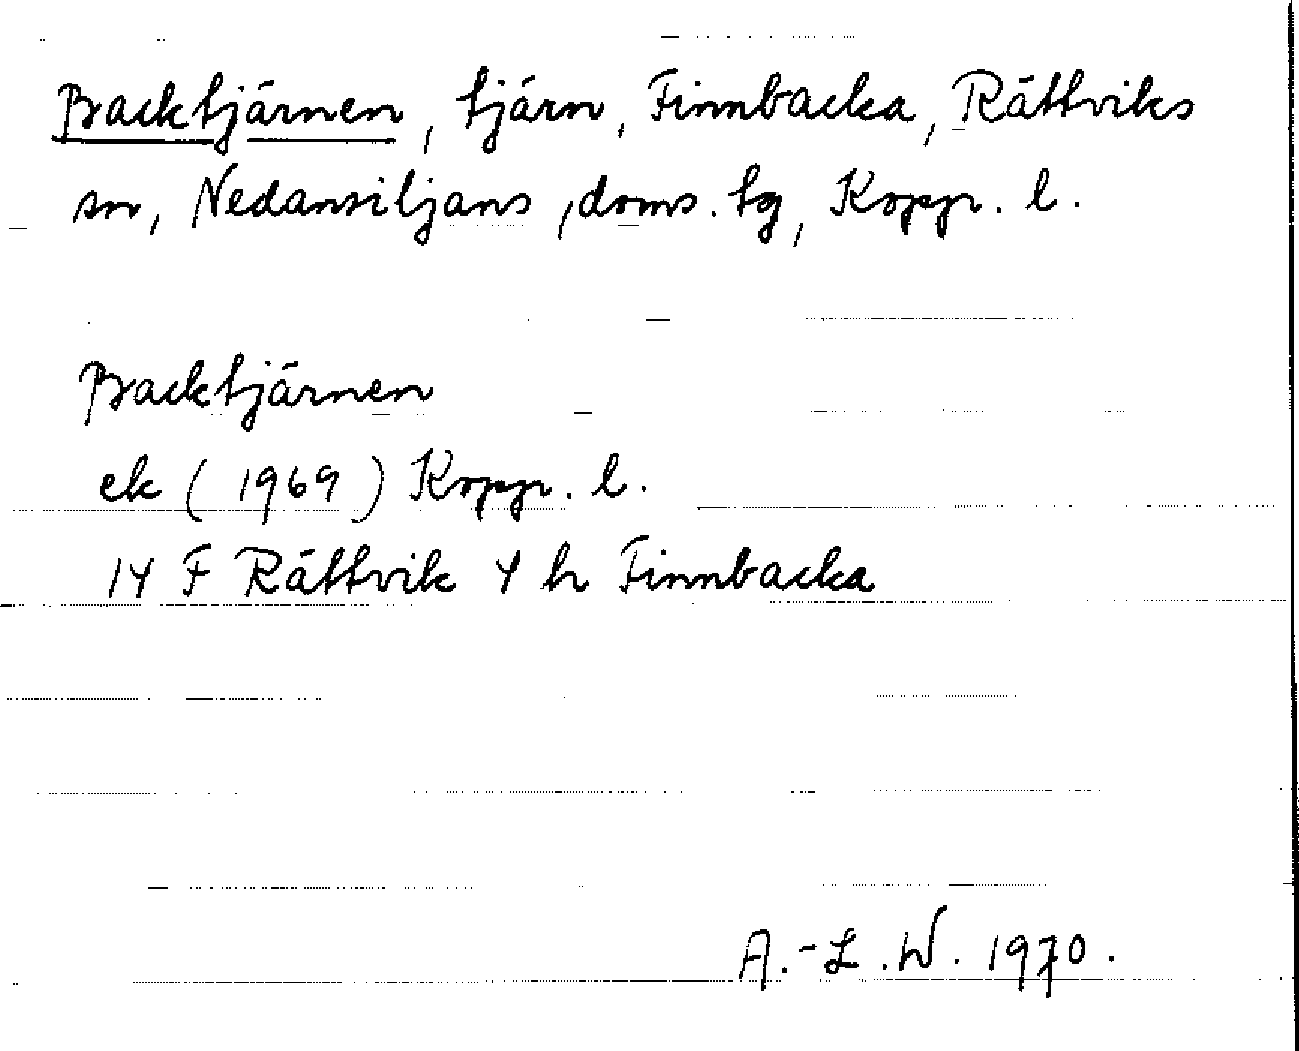 Backtjärnen, tjärn, Finnbacka, Rättviks
sn, Nedansiljans, doms. tg, Kopp. l.
Backtjärnen
ek (1969) Kopp. l.
14 F Rättvik 4 h Finnbacka
A.-L.W. 1970.